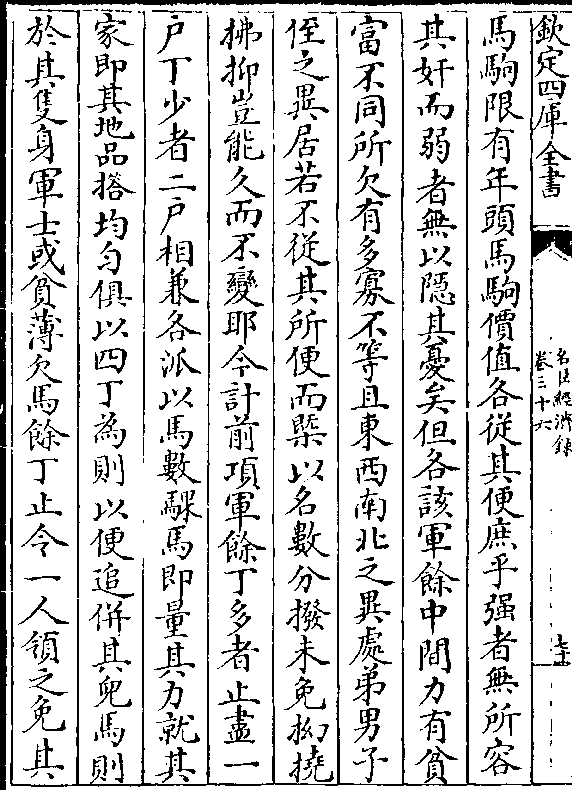 欽定四庫全書
名臣經濟錄
卷三十六
馬駒限有年頭馬駒價值各從其便庶乎强者無所容
其奸而弱者無以隱其憂矣但各該軍餘中間力有貧
富不同所欠有多寡不等且東西南北之異處弟男子
侄之異居若不從其所便而槩以名數分撥未免拗撓
拂抑豈能久而不變耶今計前項軍餘丁多者止盡一
户丁少者二户相兼各派以馬數騍馬即量其力就其
家即其地品搭均勻俱以四丁為則以便追併其兒馬則
於其隻身軍士或貧薄欠馬餘丁止令一人領之免其